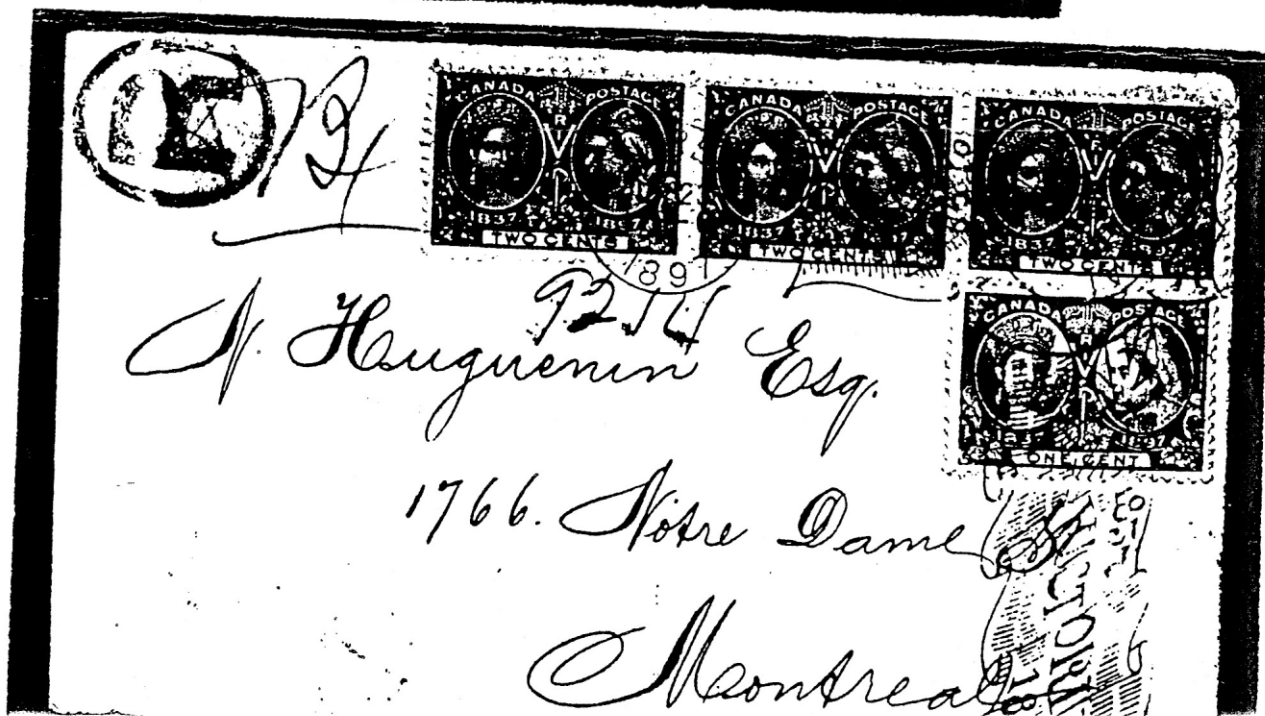 R
CANADA POSTAGE
1837 1897
TWO CENTS
CANADA POSTAGE
1837
TWO CENTS
CANADA POSTAGE
1837
TWO CENTS
CANADA POSTAGE
1837 1897
ONE CENT
9214
N. Huguenin Esq.
1766. Notre Dame St
Montreal
VICTORIA